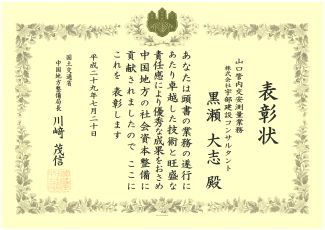 表彰状
山口管内交安測量業務
株式会社宇部建設コンサルタント
黒瀬 大志 殿
あなたは頭書の業務の遂行に
あたり卓越した技術と旺盛な
責任感により優秀な成果をおさめ
中国地方の社会資本整備に
貢献されましたので ここに
これを 表彰します
平成二十九年七月二十日
国土交通省
中国地方整備局長
川﨑 茂信